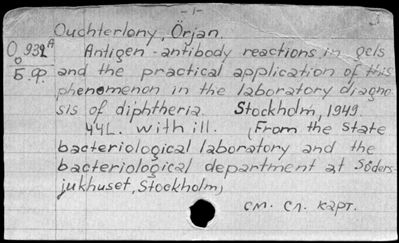 -1-
Ouchterlony, Örjan.
О 932 А
Б.ф.
Antigen-antibody reactions in gels
and the practical application of this
phenomenon in the laboratory diagno-
sis of diphtheria. Stockholm, 1949.
44L. with ill. (From the State
bacteriological laboratory and the
bacteriological department at Söders-
jukhuset, Stockholm)
см. сл. карт.